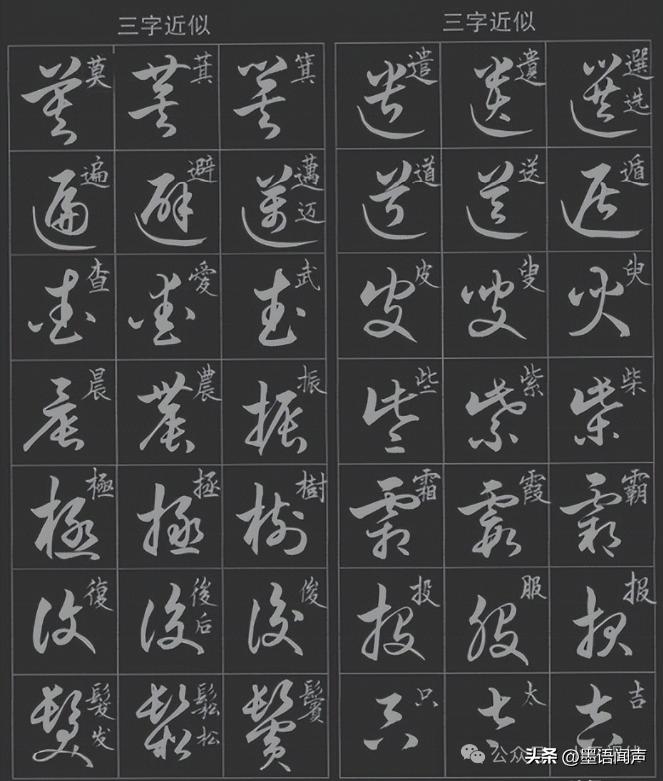 三字近似
三字近似
莫 萁 箕
遍 避 邁迈
查 愛 武
晨 農 振
極 拯 樹
復 後后 俊
髮发 鬆松 鬢
遣 遺 選选
道 送 遁
皮 叟 臾
些 紫 柴
霜 霞 霸
投 服 报
只 太 吉
公众号
头条 @墨语闻声